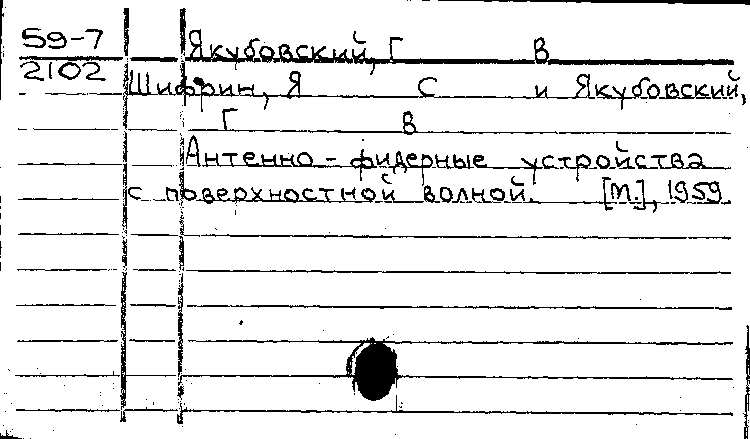 59-7
2102
Якубовский, Г В
Шифрин, Я С и Якубовский,
Г В
Антенно-фидерные устройства
с поверхностной волной. [М.], 1959